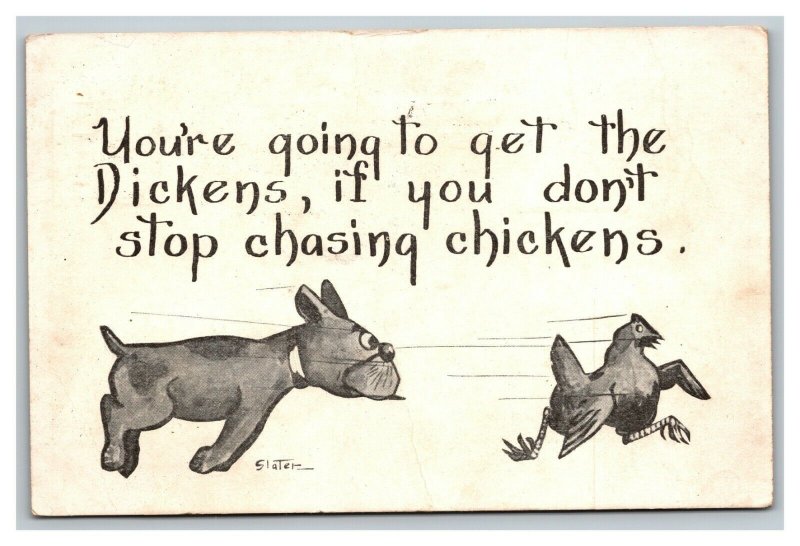 You're going to get the
Dickens, if you don't
stop chasing chickens.
Slater